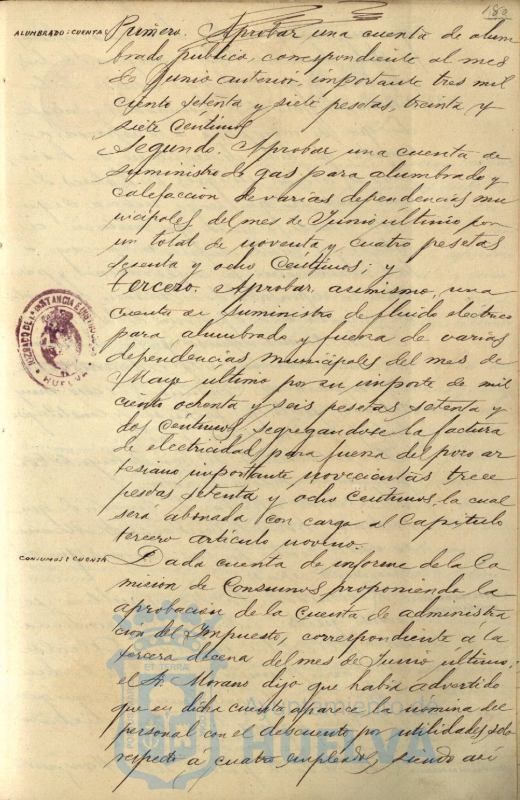 182
ALUMBRADO: CUENTA
Primero. Aprobar una cuenta de alum
brado público, correspondiente al mes
de Junio anterior, importante tres mil
ciento setenta y siete pesetas, treinta y
siete Céntimos
Segundo. Aprobar una cuenta de
suministro de gas para alumbrado y
calefaccion de varias dependencias mu
nicipales del mes de Junio último por
un total de noventa y cuatro pesetas
y ocho Céntimos; y
tercero. Aprobar asimismo una
cuenta de suministro de fluido electrico
para alumbrado y fuerza de varias
dependencias municipales del mes de
Mayo último por su importe de mil
ciento ochenta y seis pesetas setenta y
dos Céntimos segregandose la factura
de electricidad para fuerza del pozo ar
tesiano importante novecientas trece
pesetas setenta y ocho Centimos, la cual
será abonada con cargo al Capítulo
tercero artículo noveno.
CONSUMOS: CUENTA
Dada cuenta de informe de la Co
mision de Consumos proponiendo la
aprobacion de la Cuenta de administra
cion del Impuesto, correspondiente á la
tercera decena del mes de Junio último;
el Sr. Morano dijo que habia advertido
que en dicha cuenta aparece la nómina del
personal con el descuento por utilidades solo
respecto á cuatro empleados, siendo así
JUZGADO DE 1ª INSTANCIA E INSTRUCCION
HUELVA
Ayuntamiento de
HUELVA